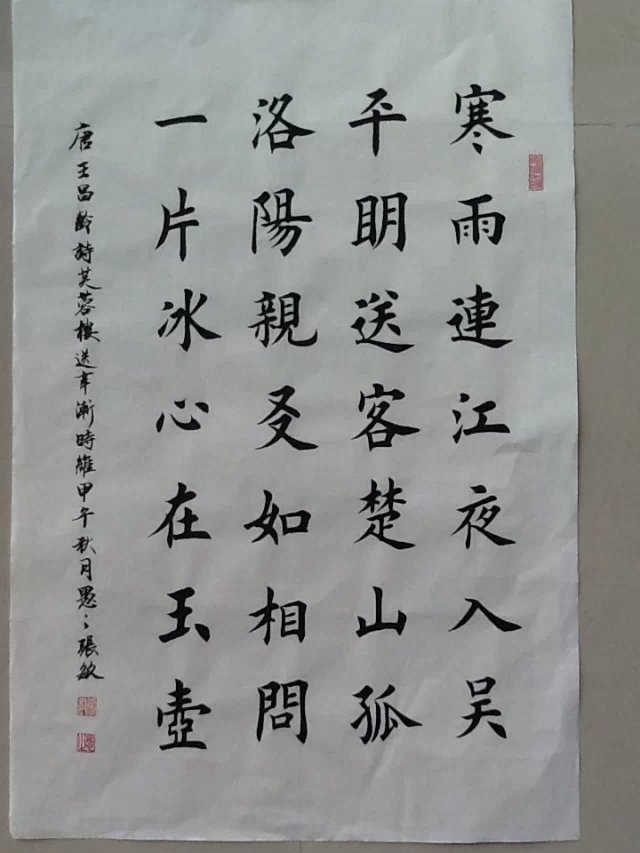 寒雨連江夜入吴
平明送客楚山孤
洛陽親友如相問
一片冰心在玉壺
唐王昌齡詩芙蓉樓送辛漸時維甲午秋月愚々張敏